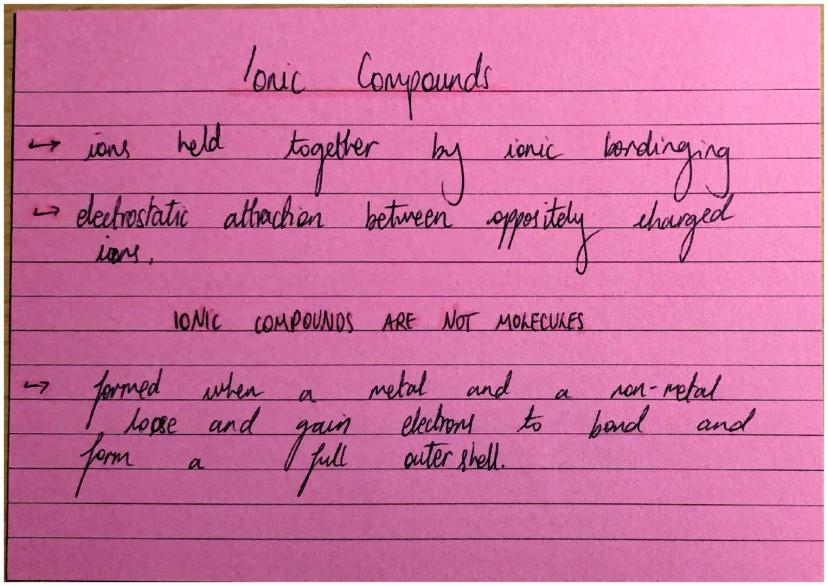 Ionic Compounds
→ ions held together by ionic bondinging
→ electrostatic attraction between oppsitely charged
ions.
IONIC COMPOUNDS ARE NOT MOLECULES
→ formed when a metal and a non-metal
loose and gain electrons to bond and
form a full outer shell.